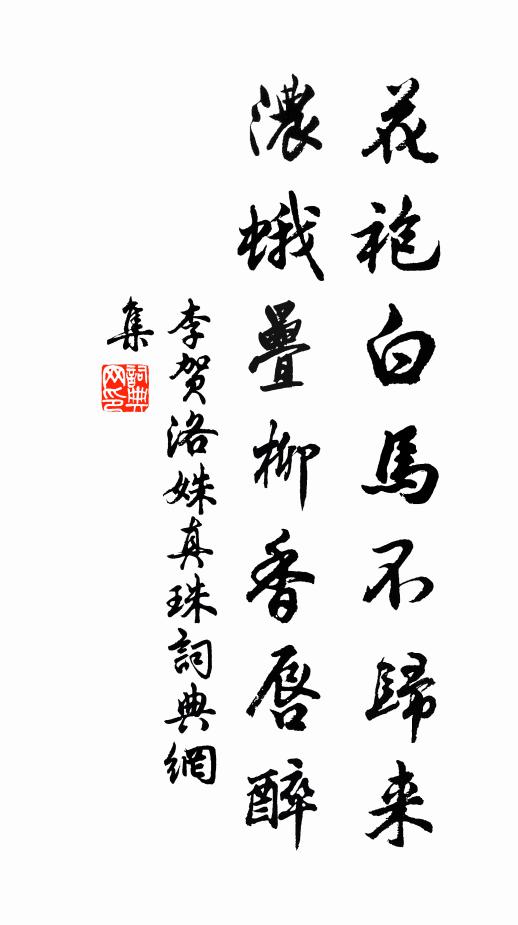 花袍白馬不歸来
濃蛾疊柳香唇醉
李賀洛姝真珠詞典網
集
詞典网印